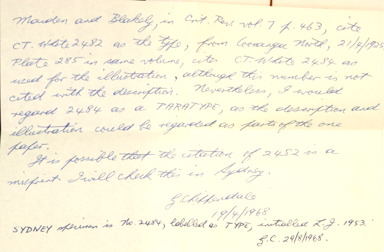 Maiden and Blakely, in Crit. Rev. vol 7 p.463, cite
CT. White 2482 as the type, from North, 21/4/1925
Plate 285 in same volume, cites CT. White 2484 as
used for the illustration, although this number is not
cited with the description. Nevertheless, I would
regard 2484 as a PARATYPE, as the description and
illustration could be regarded as parts of the one
paper.
It is possible that the citation of 2482 is a
misprint. I will check this in Sydney.
G Chippendale
19/4/1968
SYDNEY specimen is No. 2484, labelled as TYPE, initialled L.J. 1953.
G.C. 29/8/1968.